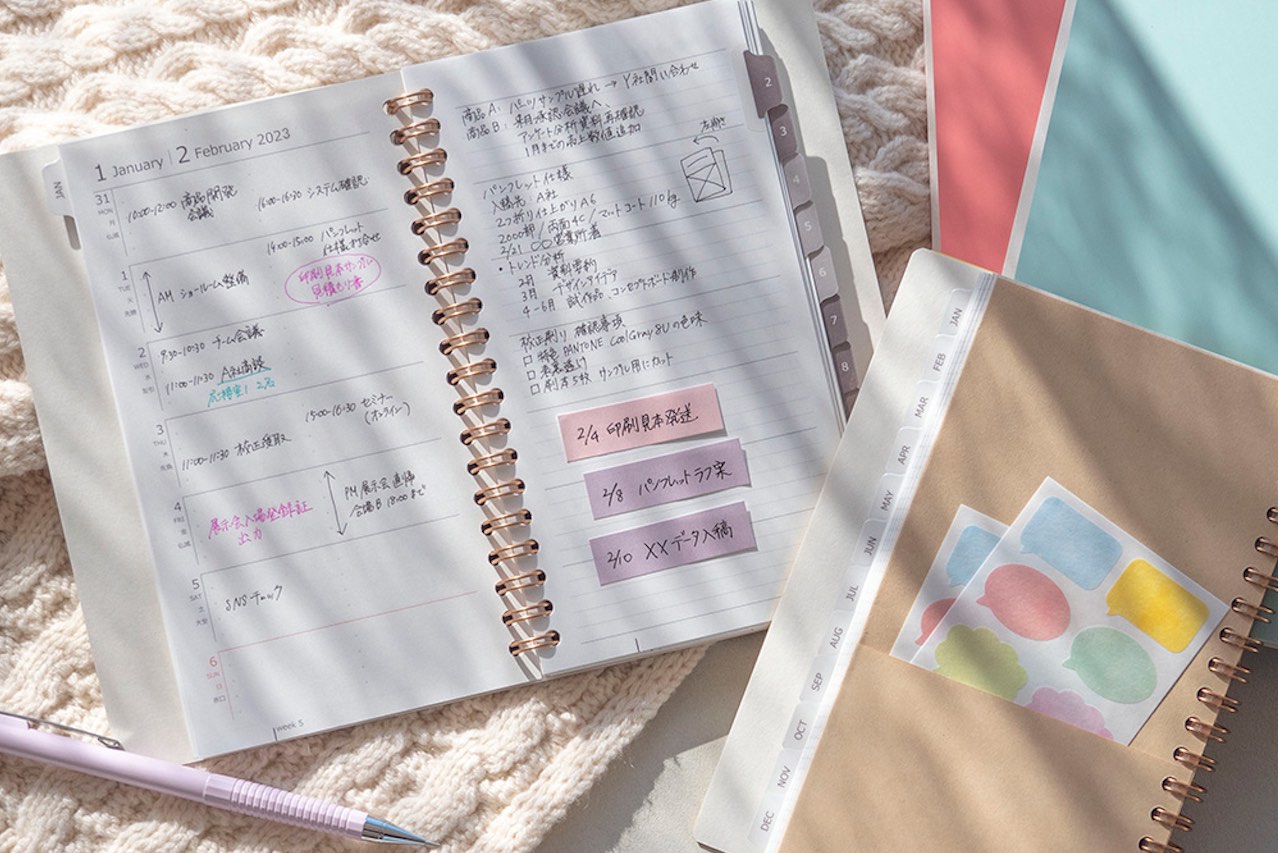 1 January | 2 February 2023
31
MON
月
仏滅
10:00-12:00 商品開発
会議
16:00-16:30 システム確認
14:00-15:00 パンフレット
仕様打合せ
1
TUE
火
先勝
AM ショールーム整備
印刷見本サンプル
見積もり書
2
WED
水
友引
9:30-10:30 チーム会議
11:00-11:30 A社商談
応接室1 2名
3
THU
木
先負
15:00-16:30 セミナー
(オンライン)
11:00-11:30 校正受取
4
FRI
金
仏滅
展示会入場登録証
出力
PM 展示会直帰
会場B 18:00まで
5
SAT
土
大安
SNSチェック
6
SUN
日
赤口
week 5
JAN
商品A: パーツサンプル遅れ → Y社問い合わせ
商品B: 来月承認会議へ、
アンケート分析資料再確認
1月までの売上数値追加
パンフレット仕様
入稿先:A社
2つ折り仕上がりA6
2000部/両面4C/マットコート110kg
2/21 〇〇営業所着
左開き
・トレンド分析
2月 資料要約
3月 デザインアイデア
4-6月 試作品、コンセプトボード制作
校正刷り 確認事項
□ 特色 PANTONE CoolGray 8Uの色味
□ 表裏透け
□ 刷本5枚 サンプル用にカット
2/4 印刷見本発送
2/8 パンフレットラフ案
2/10 XXデータ入稿
2
3
4
5
6
7
8
JAN
FEB
MAR
APR
MAY
JUN
JUL
AUG
SEP
OCT
NOV
DEC